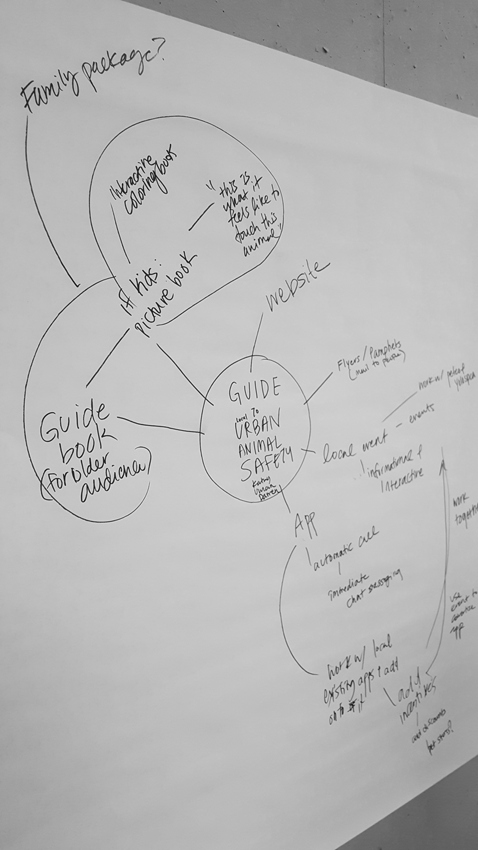 Family package?
Interactive
coloring book
"this is
what it
feels like to
touch this
animal"
If kids:
picture book
website
Guide
book
(for older
audience)
GUIDE
URBAN
ANIMAL
SAFETY
Flyers / Pamphlets
(mail to
local event - events
work w/
informational &
Interactive
App
automatic call
immediate
chat messaging
work
together
work w/ local
existing apps & add
on to it
use
event to
app
add
incentives